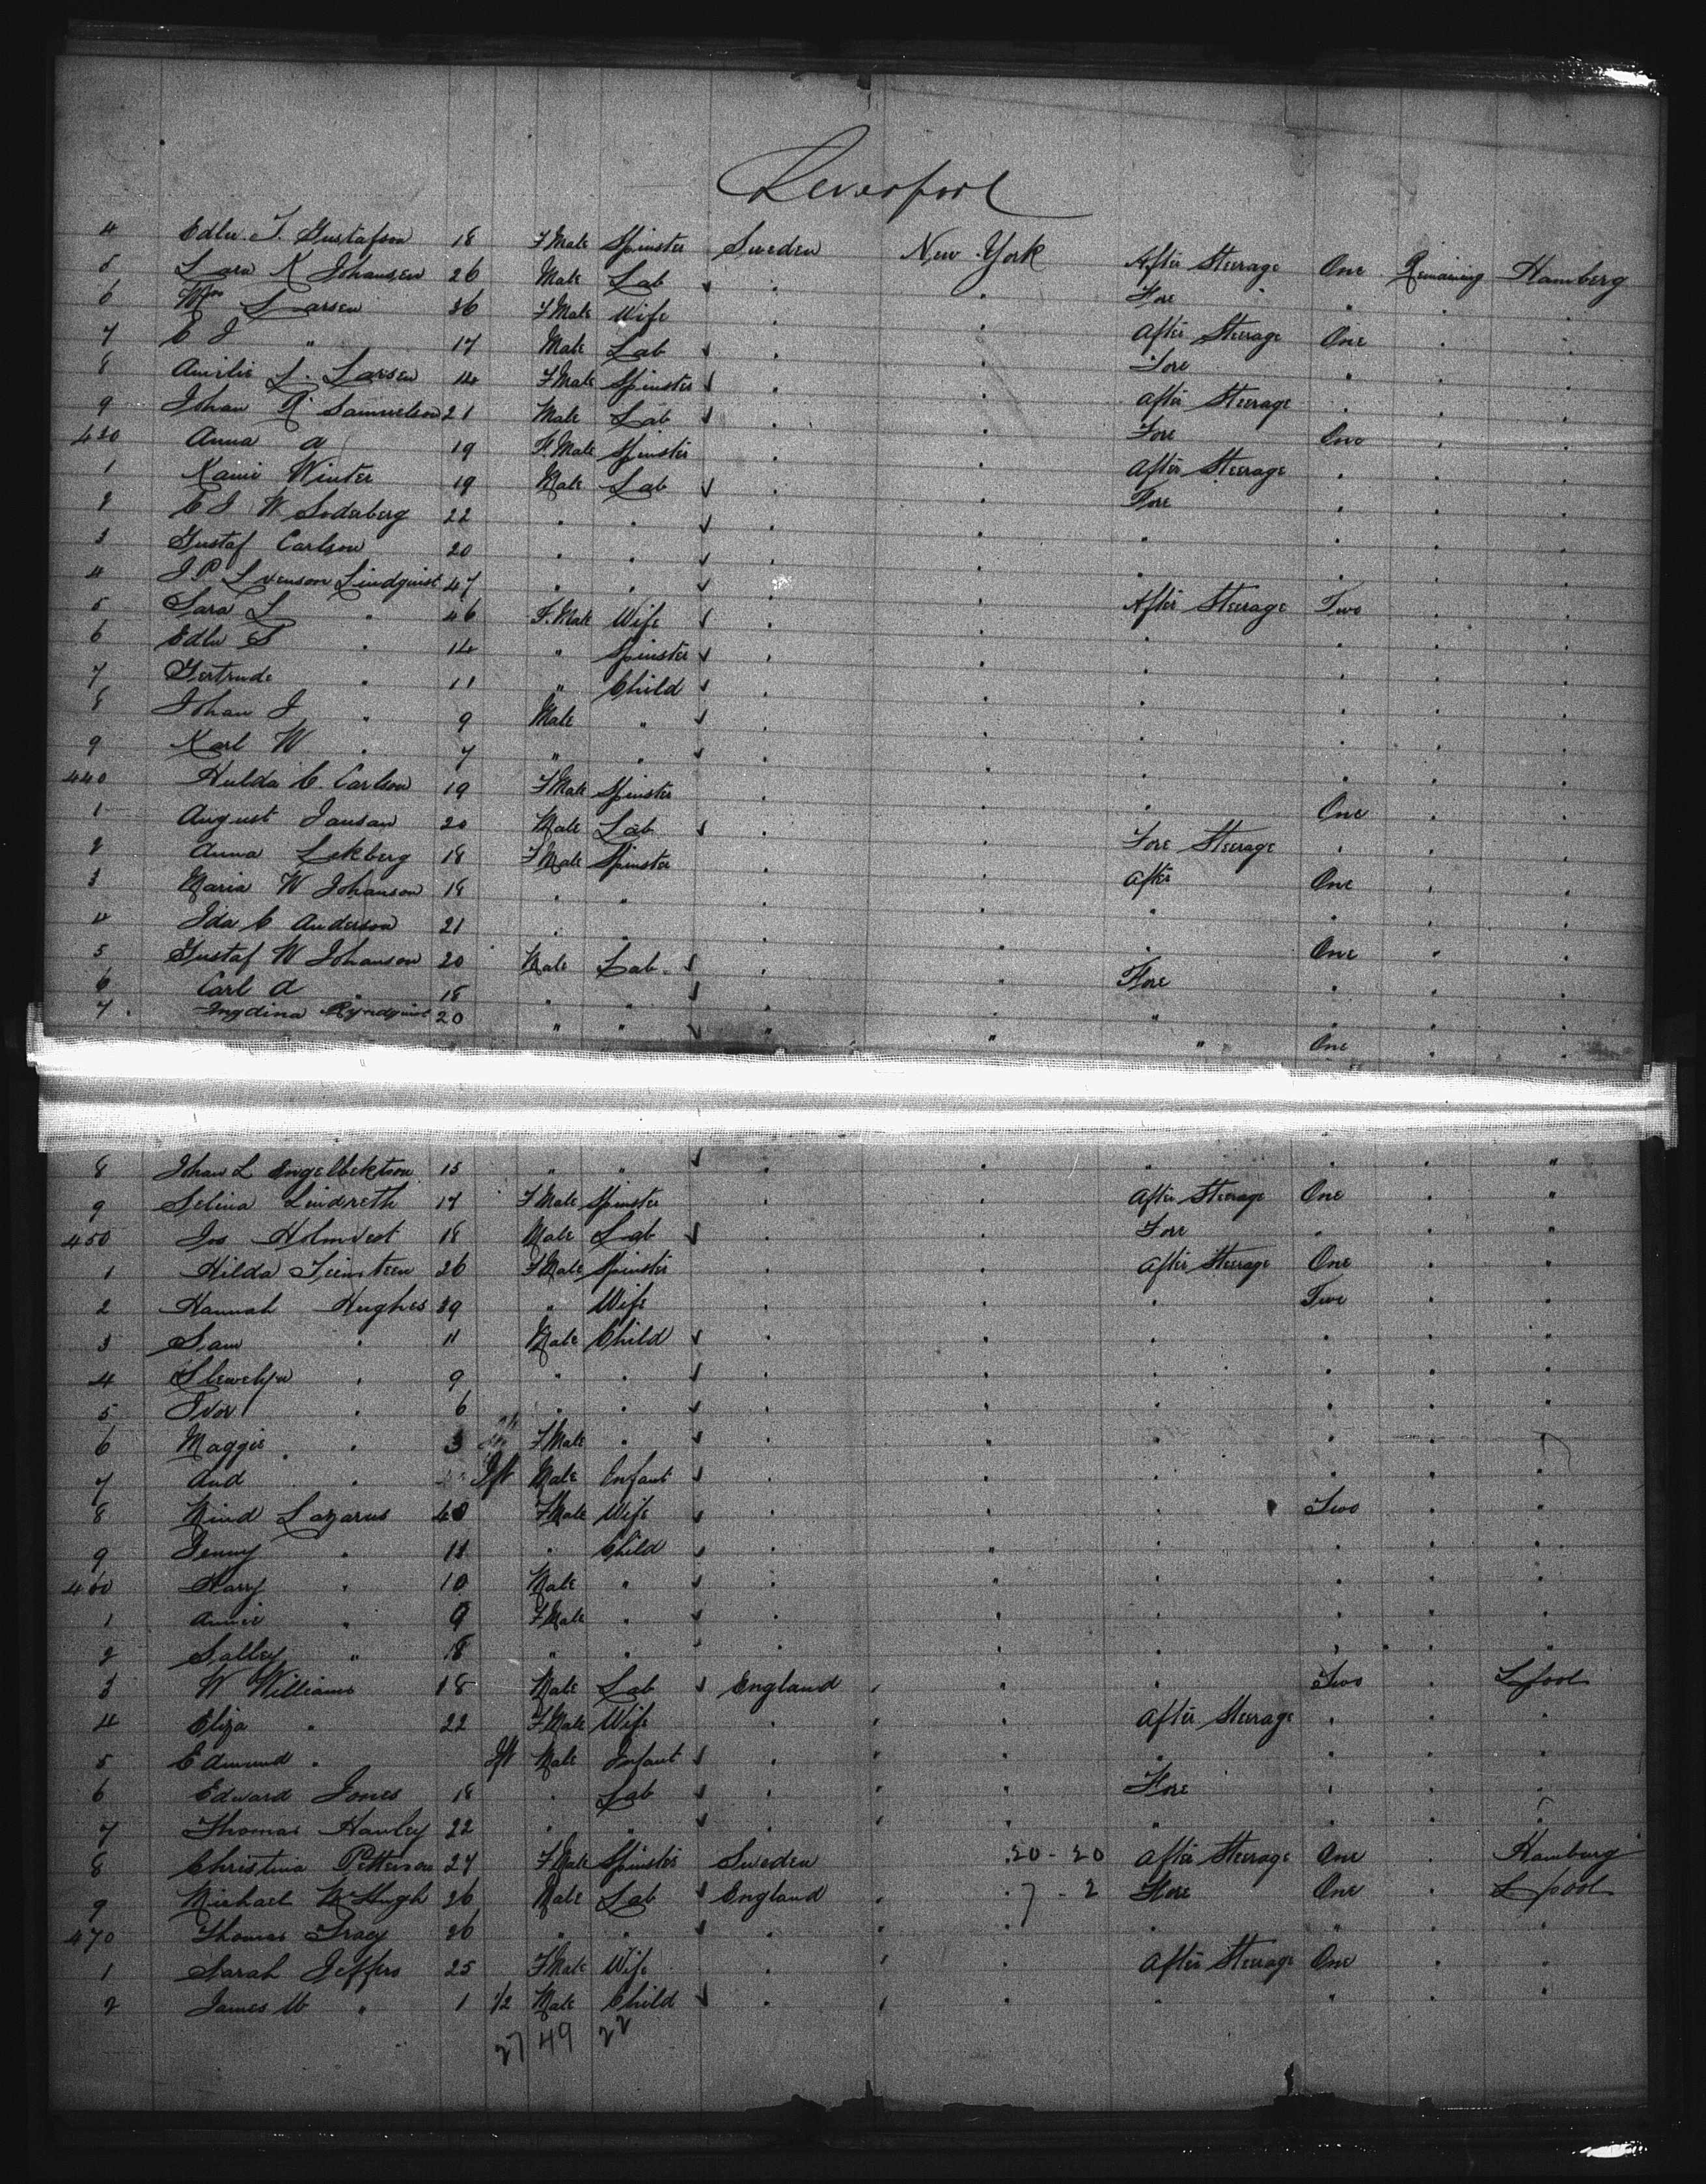 Liverpool
4 Edlu T. Gustafson 18 F Male Spinster Sweden New York After Steerage One Remaining Hamberg
5 Lara K Johansen 26 Male Lab " " Fore " " "
6 Mrs Larsen 36 F Male Wife " " After Steerage One " "
7 C J " 17 Male Lab " " Fore " " "
8 Amilie L. Larsen 14 F Male Spinster " " After Steerage " " "
9 Johan R Samuelson 21 Male Lab " " Fore One " "
430 Anna A 19 F. Male Spinster " " After Steerage " " "
1 Winter 19 Male Lab " " Fore " " "
2 C J W Soderberg 22 " " " " " " " "
3 Gustaf Carlson 20 " " " " " " " "
4 J P Svenson Lindquist 47 " " " " After Steerage Two " "
5 Sara L " 46 F. Male Wife " " " " " "
6 Edlu S " 14 " Spinster " " " " " "
7 Gertrude " 11 " Child " " " " " "
8 Johan J " 9 Male " " " " " " "
9 Karl W " 7 " " " " " " " "
440 Hulda C. Carlson 19 F Male Spinster " " " One " "
1 August Jansan 20 Male Lab " " Fore Steerage " " "
2 Anna Lekberg 18 F Male Spinster " " After One " "
3 Maria W Johanson 18 " " " " " " " "
4 Ida C Anderson 21 " " " " " One " "
5 Gustaf W Johanson 20 Male Lab " " Fore " " "
6 Carl A " 18 " " " " " " " "
7 Ingdina 20 " " " " " One " "
8 Johan L Engelbektson 15 " " " " " " " "
9 Selina Lindreth 17 F Male Spinster " " After Steerage One " "
450 Jos Holmvest 18 Male Lab " " Fore " " "
1 Hilda 26 F Male Spinster " " After Steerage One " "
2 Hannah Hughes 39 " Wife " " " Two " "
3 Sam " 11 Male Child " " " " " "
4 Llewelyn " 9 " " " " " " " "
5 Ivor " 6 " " " " " " " "
6 Maggie " 3 F Male " " " " " " "
7 And " Ift Male Infant " " " " " "
8 Mind Lazarus 40 F Male Wife " " " Two " "
9 Jenny " 11 " Child " " " " " "
460 Harry " 10 Male " " " " " " "
1 Annie " 9 F Male " " " " " " "
2 Salley " 18 " " " " " " " "
3 W Williams 18 Male Lab England " " Two " Lpool
4 Eliza " 22 F Male Wife " " After Steerage " " "
5 Edmund " Ift Male Infant " " " " " "
6 Edward Jones 18 " Lab " " Fore " " "
7 Thomas Hanley 22 " " " " " " " "
8 Christina Petterson 27 F Male Spinster Sweden 20 - 20 After Steerage One " Hamburg
9 Michael McHugh 26 Male Lab England " 7 - 2 Fore One " Lpool
470 Thomas Tracy 26 " " " " " " " "
1 Sarah Jeffers 25 F Male Wife " " After Steerage One " "
2 James W " 1 1/2 Male Child " " " " " "
27 49 22